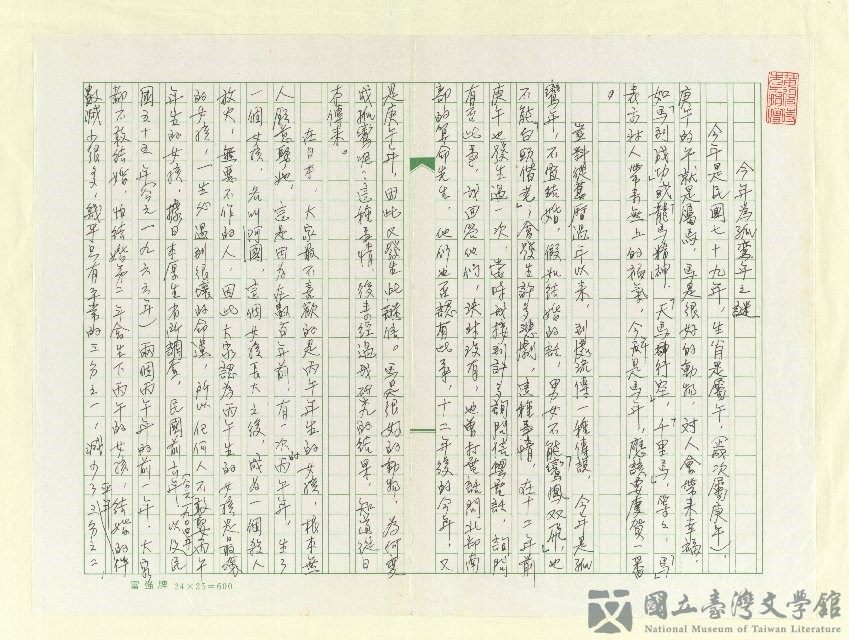 今年為孤鸞年之謎
今年是民國七十九年，生肖是屬午，（歲次屬庚午），
庚午的午就是屬馬，馬是很好的動物，對人會帶來幸福，
如「馬到成功」或「龍馬精神」，「天馬行空」，「千里馬」，等之，馬
表示對人帶有無上的福氣，今評是馬年，應該要慶賀一番
。
豈料從舊曆過年以來，到處流傳一種傳說，今年是孤
鸞年，不宜結婚，假如結婚的話，男女不能「鸞鳳双飛」也
不能「白頭偕老」，會發生許多悲劇，這種事情，在十二年前
庚午也發生過一次，當時我接到許多詢問信與電話，詢問
有否此事，我回答他們，決對沒有，也曾打電話問北部南
部的算命先生，他们也否認有此事，十二年後的今年，又
是庚午年，因此又發生此謎信。馬是很好的動物，為何變
成孤鸞呢？這種事情，後來經過我研究的結果，知道從日
本傳來。
在日本，大家最不喜歡的是丙午年生的女孩，根本無
人願意娶她，這是因為在數百年前，有一次的丙午年，生了
一個女孩，名叫阿國，這個女孩長大之後，成為一個殺人
放火，無惡不作的人，因此大家認為丙午生的女孩是最壞
的女孩，一生必遇到很壞的命運，所以任何人不敢娶丙午
年生的女孩，據日本厚生省所調查，民國前六年（一九〇六年）以及民
國五十五年（公元一九六六年）兩個丙午年的前一年，大家
都不敢結婚，怕結婚第二年會生下丙午的女孩，結婚的件
數減少很多，幾乎只有平常的三分之一，減少了三分之二，
富強牌 24×25=600
國立臺灣文學館
National Museum of Taiwan Literature